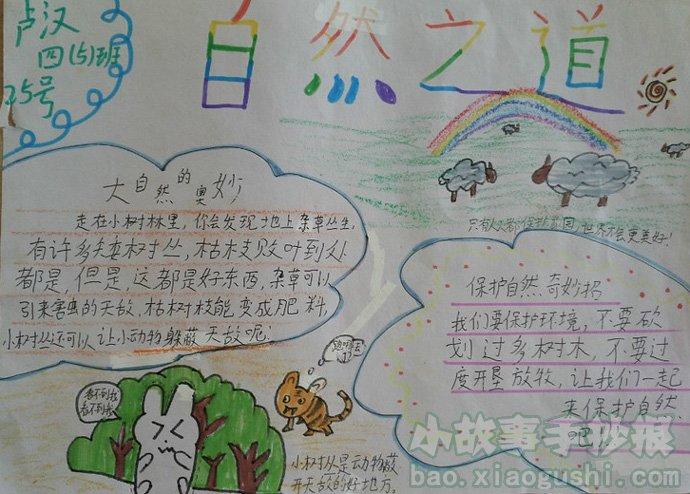 卢汉
四(5)班
25号
自然之道
大自然的奥妙
走在小树林里,你会发现地上杂草丛生,
有许多矮树丛,枯枝败叶到处
都是,但是,这都是好东西,杂草可以
引来害虫的天敌,枯树枝能变成肥料,
小树丛还可以让小动物躲蔽天敌呢!
只有人人都保护家园,世界才会更美好!
保护自然奇妙招
我们要保护环境,不要砍
划过多树木,不要过
度开垦放牧,让我们一起
来保护自然
吧
看不到我
看不到我
小树丛是动物蔽
开天敌的好地方。
小故事手抄报
bao.xiaogushi.com